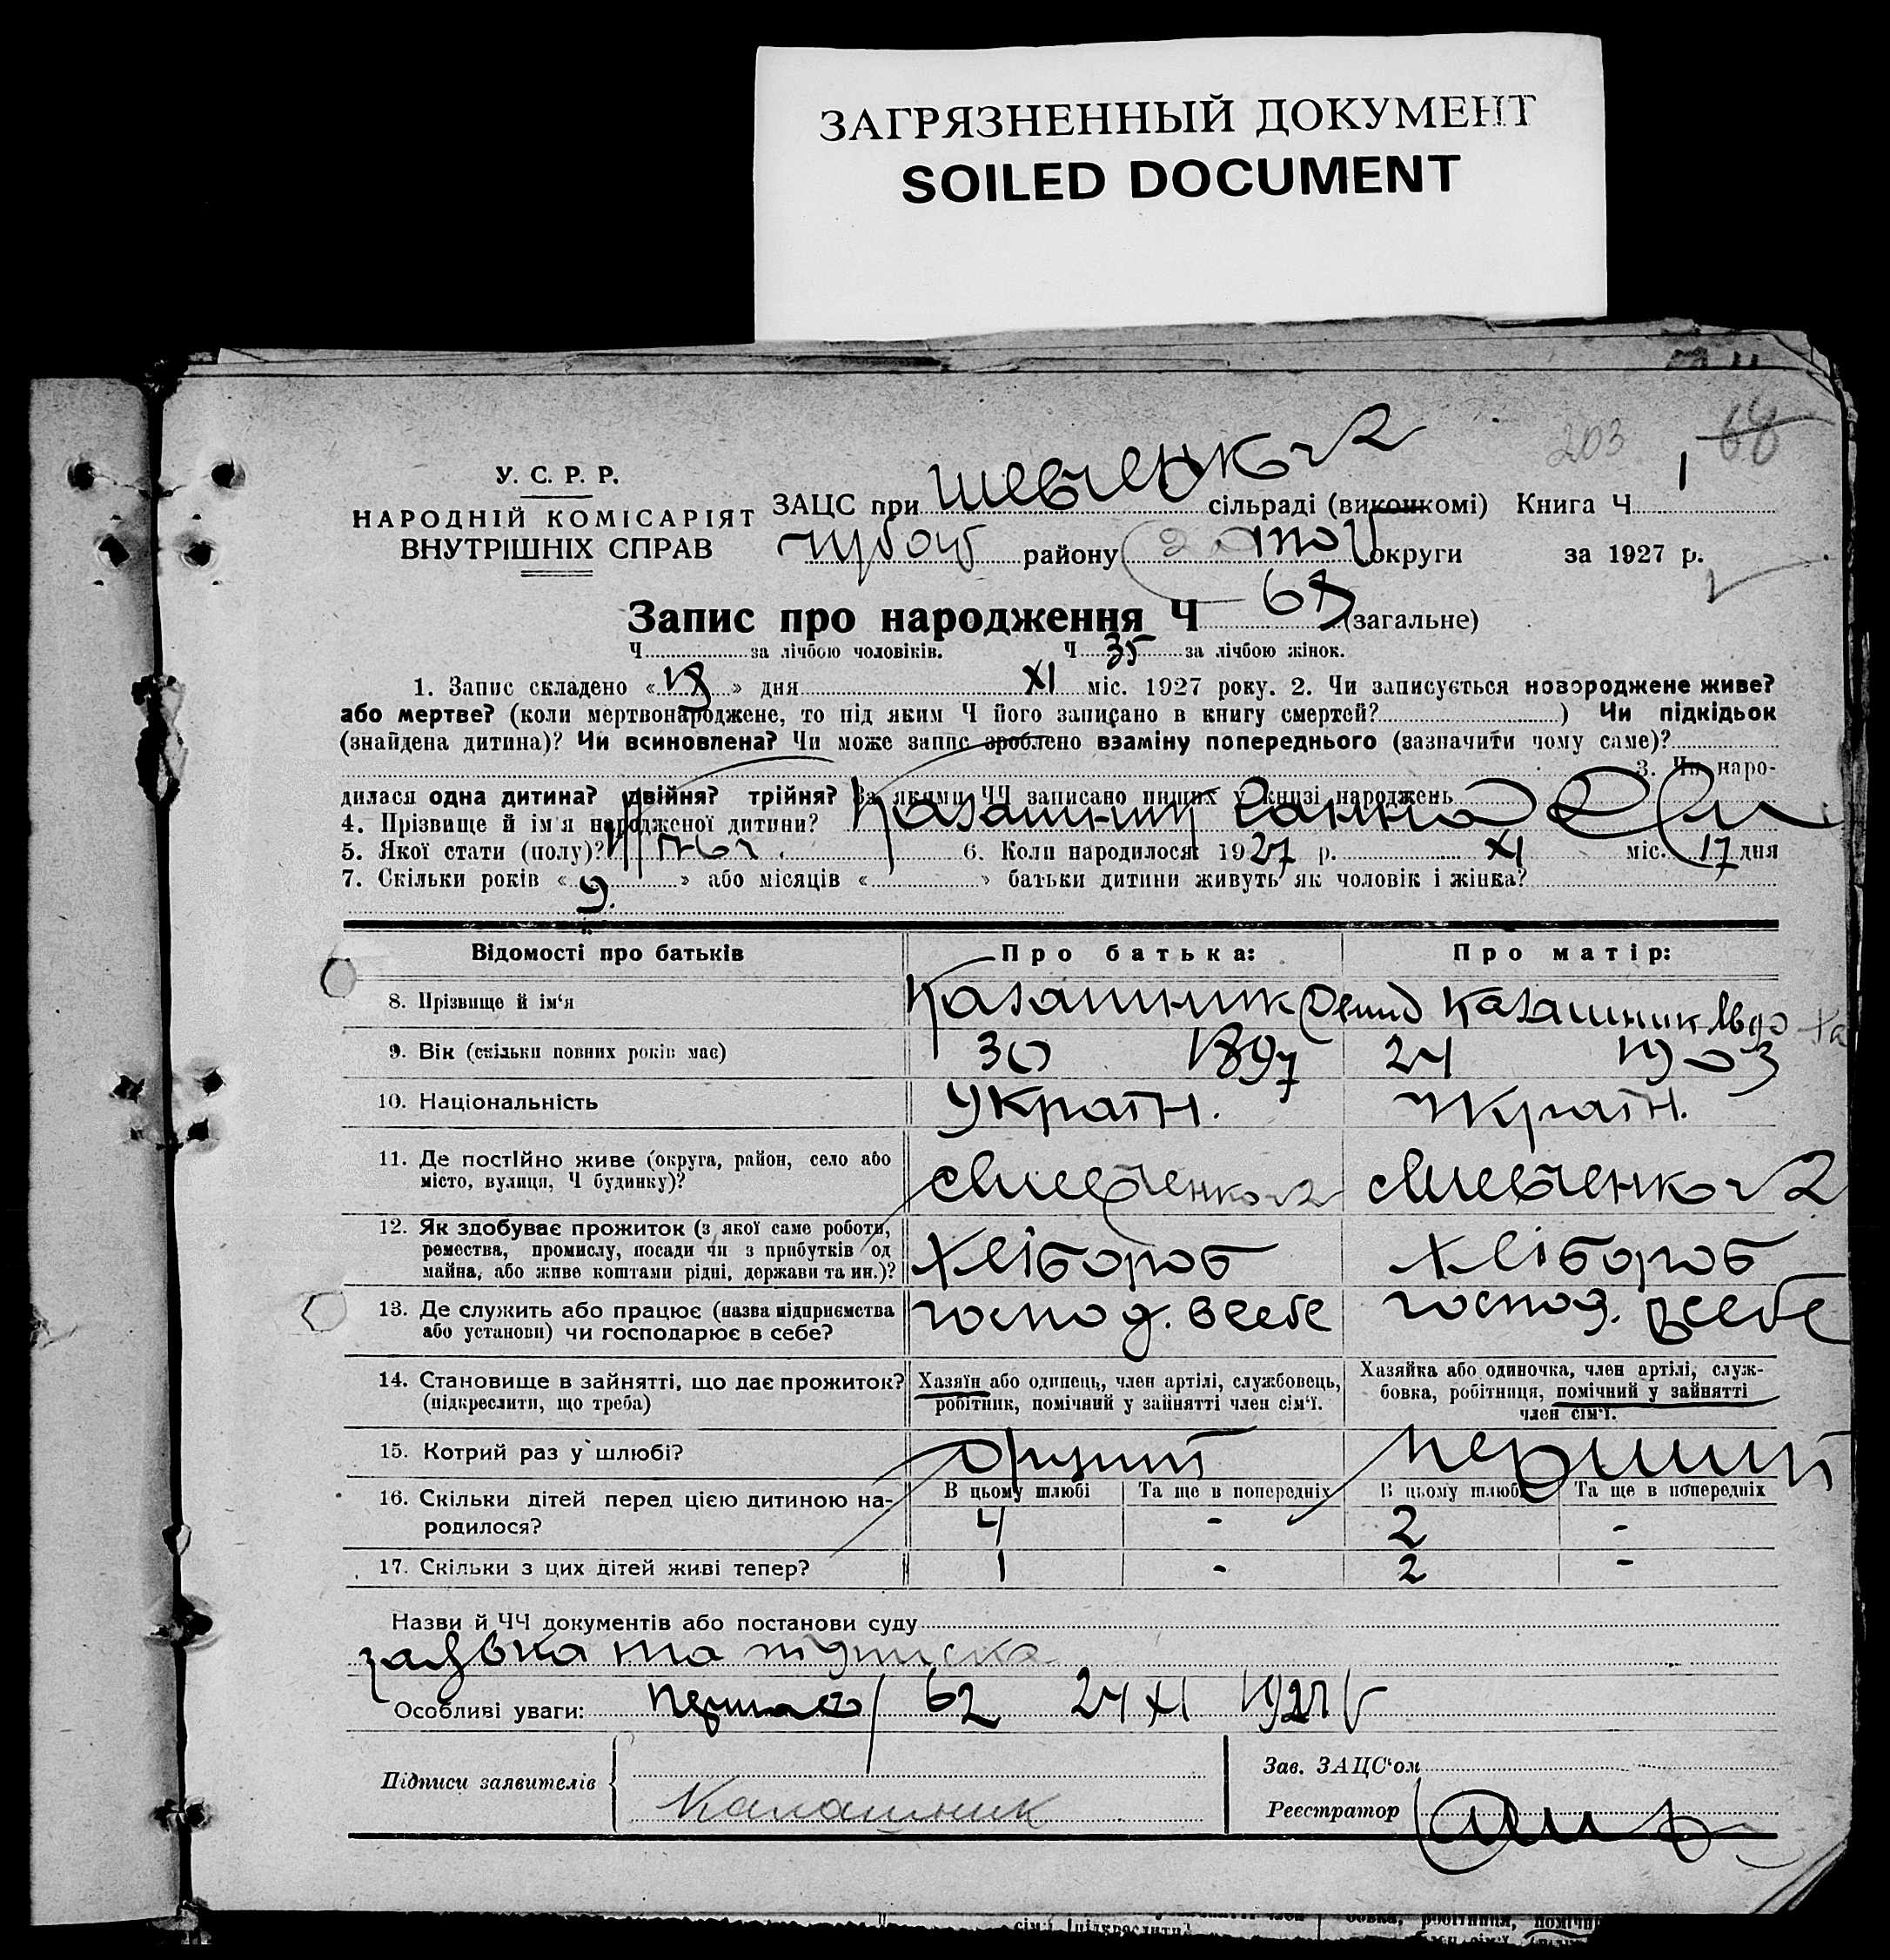 ЗАГРЯЗНЕННЫЙ ДОКУМЕНТ
SOILED DOCUMENT
203 68
У. С. Р. Р.
НАРОДНІЙ КОМІСАРІЯТ
ВНУТРІШНІХ СПРАВ
ЗАЦС при сільраді (виконкомі) Книга Ч 1
району округи за 1927 р.
Запис про народження Ч (загальне)
Ч за лічбою чоловіків. Ч 35 за лічбою жінок.
1. Запис складено « » дня XI міс. 1927 року. 2. Чи записується новороджене живе?
або мертве? (коли мертвонароджене, то під яким Ч його записано в книгу смертей? ) Чи підкідьок
(знайдена дитина)? Чи всиновлена? Чи може запис зроблено взаміну попереднього (зазначити чому саме)?
3. Чи наро-
дилася одна дитина? двійня? трійня? За якими ЧЧ записано инших у книзі народжень
4. Прізвище й ім'я народженої дитини? Ганна
5. Якої стати (полу)? 6. Коли народилося: 1927 р. XI міс. 17 дня
7. Скільки років « 9. » або місяців « » батьки дитини живуть як чоловік і жінка?
Відомості про батьків Про батька: Про матір:
8. Прізвище й ім'я
9. Вік (скільки повних років має) 30 1897 24 1903
10. Національність Україн. Україн.
11. Де постійно живе (округа, район, село або
місто, вулиця, Ч будинку)?
12. Як здобуває прожиток (з якої саме роботи,
ремества, промислу, посади чи з прибутків од
майна, або живе коштами рідні, держави та ин.)? Хлібороб Хлібороб
13. Де служить або працює (назва підприємства
або установи) чи господарює в себе? господ. в себе господ. в себе
14. Становище в зайнятті, що дає прожиток?
(підкреслити, що треба)
Хазяїн або одинець, член артілі, службовець,
робітник, помічний у зайнятті член сім'ї.
Хазяйка або одиночка, член артілі, служ-
бовка, робітниця, помічний у зайнятті
член сім'ї.
15. Котрий раз у шлюбі? другий перший
16. Скільки дітей перед цією дитиною на-
родилося?
В цьому шлюбі Та ще в попередніх В цьому шлюбі Та ще в попередніх
4 - 2 -
17. Скільки з цих дітей живі тепер? 1 - 2 -
Назви й ЧЧ документів або постанови суду
заявка та підписка
Особливі уваги: 62 24 XI 1927 р
Підписи заявителів
Калашник
Зав. ЗАЦС'ом
Реєстратор